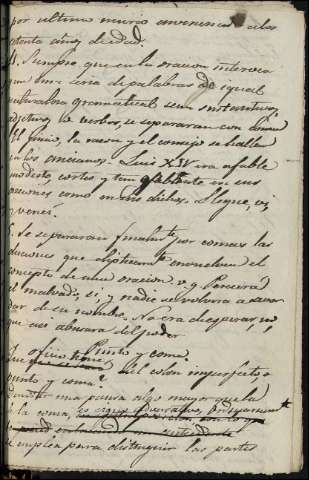 por ultimo murió envenenado a los
setenta años de edad.
4. Siempre que en la oracion intervenga
una serie de palabras de igual
naturaleza gramatical sean sustantivos,
adjetivos, o verbos, se separaran con comas
El juicio, la razon y el consejo se hallan
en los ancianos. Luis XIV era afable
modesto, cortes y tan galante en sus
acciones como en sus dichos. Llegue, vi,
venci
5. Se separaran finalmte por comas las
oraciones que elipticamte envuelven el
concepto de una oracion v.g. Perecerá
el malvado, si, y nadie se volverá a acor
dar de su nombre. No era de esperar, no,
que así abusara del poder
Punto y coma?
oficio del colon imperfecto, o
punto y coma?
Denotar una pausa algo mayor que la
de la coma,
se emplea para distinguir las partes